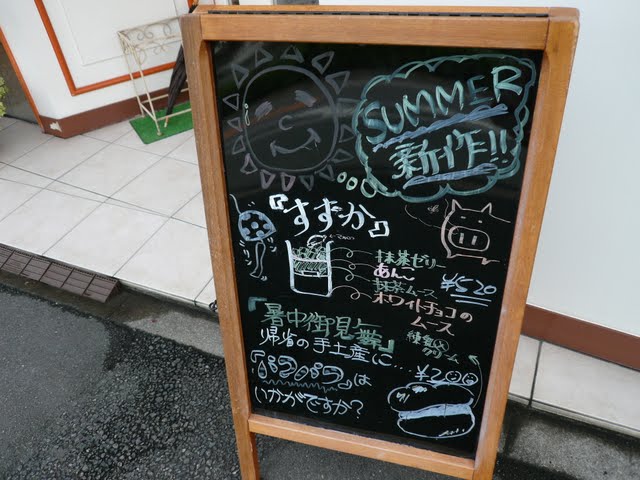 SUMMER
新作!!
『すずか』
抹茶ゼリー
あんこ
抹茶ムース
ホワイトチョコの
ムース
¥520
『暑中御見舞』
帰省の手土産に...
¥200
いかがですか?